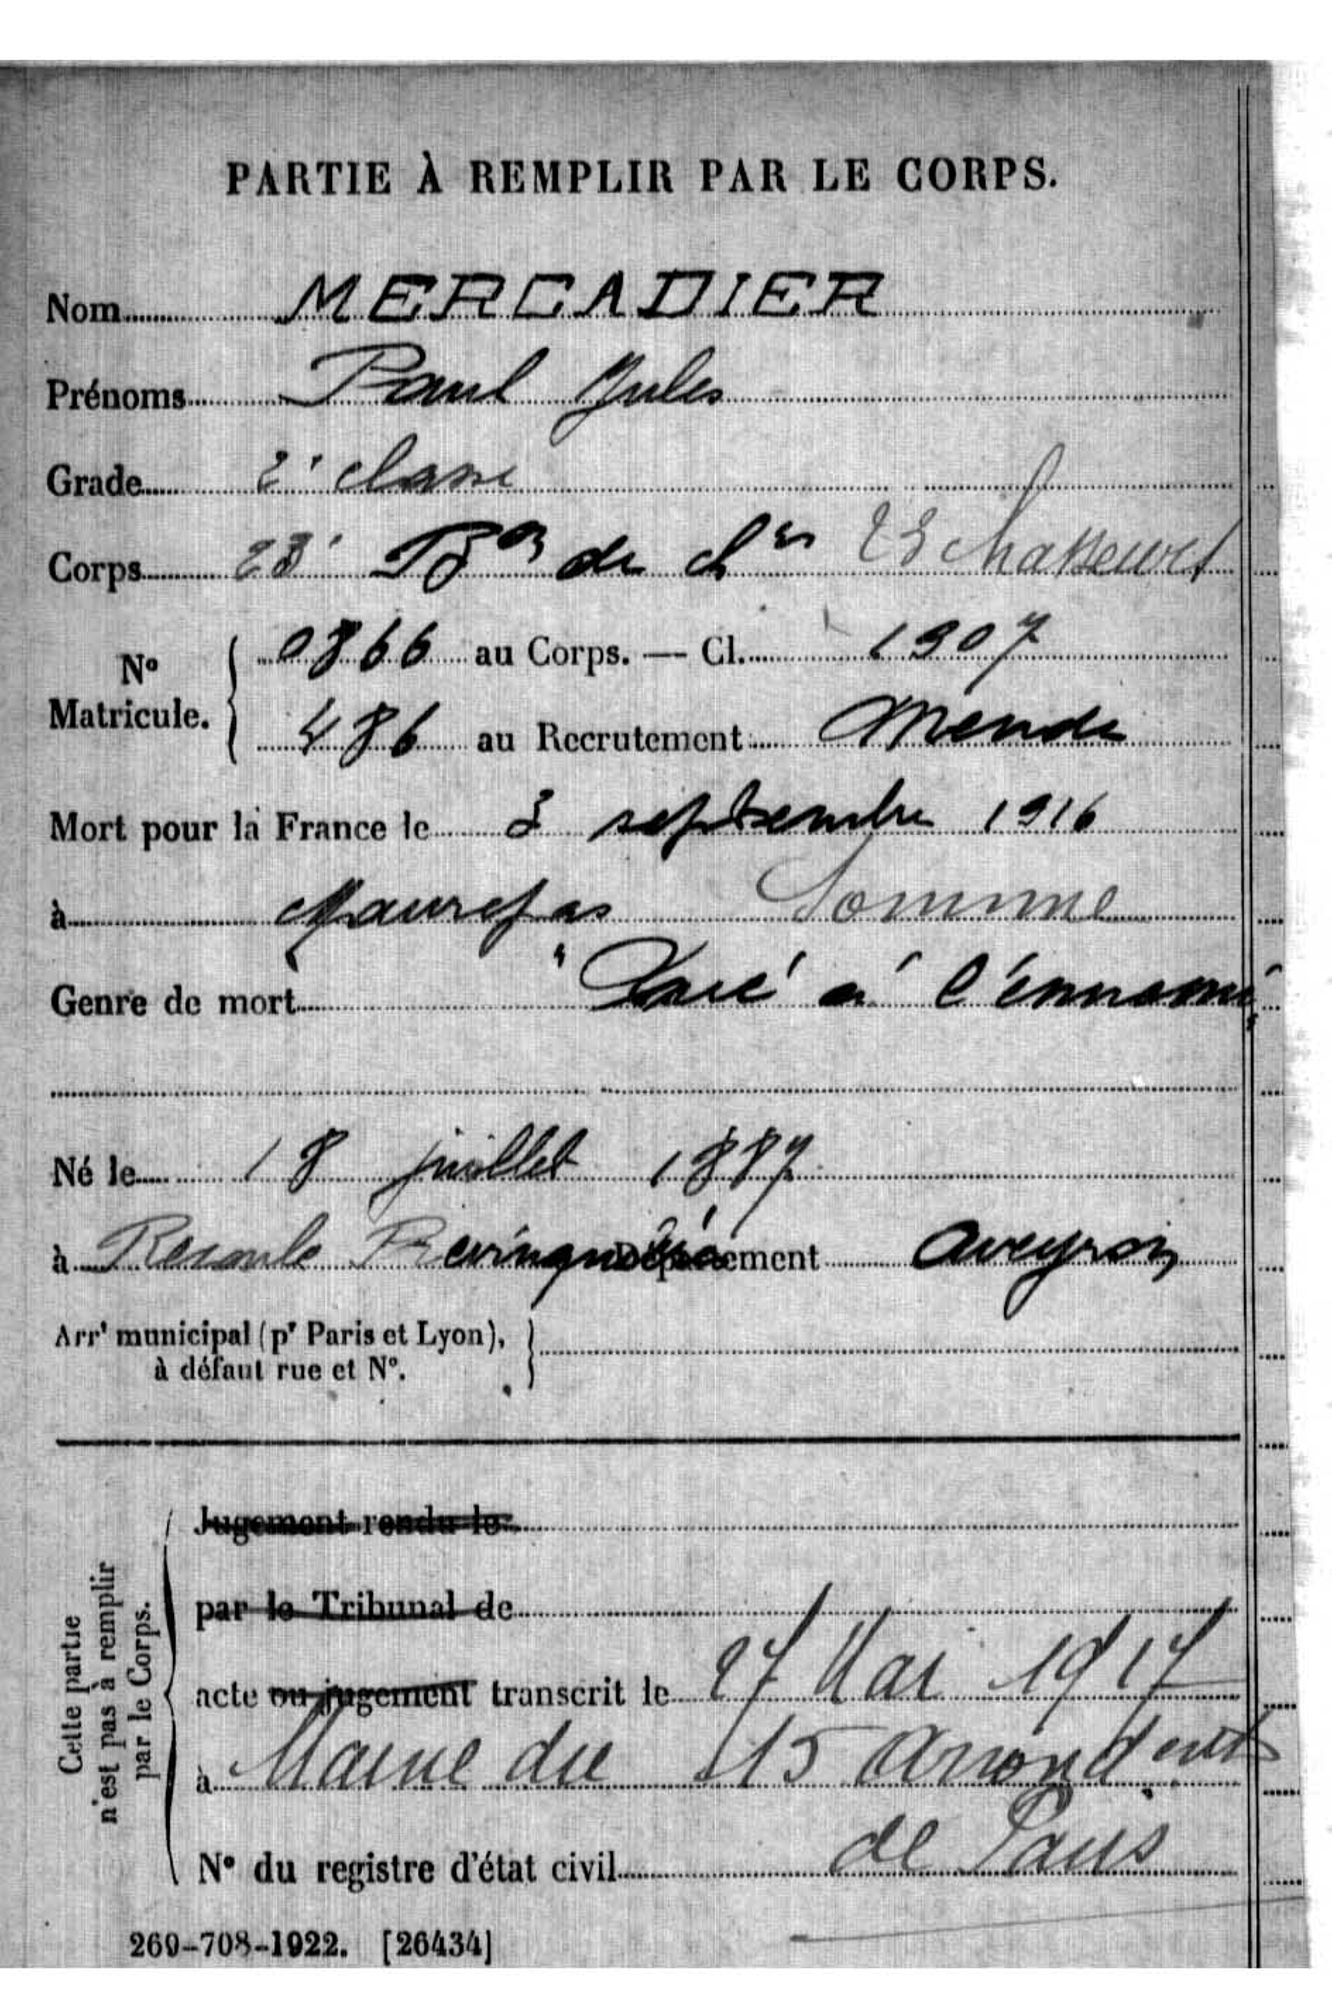 PARTIE À REMPLIR PAR LE CORPS.
Nom MERCADIER
Prénoms Paul Jules
Grade 2e classe
Corps 23e Bon de chrs 23 Chasseurs
No Matricule. { 0866 au Corps. — Cl. 1907
486 au Recrutement Mende
Mort pour la France le 3 septembre 1916
à Maurepas Somme
Genre de mort "Tué à l'ennemi"
Né le 18 juillet 1887
à Recoule Prévinquière Département Aveyron
Arrt municipal (pr Paris et Lyon),
à défaut rue et No.
Cette partie
n'est pas à remplir
par le Corps.
Jugement rendu le
par le Tribunal de
acte ou jugement transcrit le 27 Mai 1917
à Mairie du 15 arrondent
de Paris
No du registre d'état civil
269-708-1922. [26434]